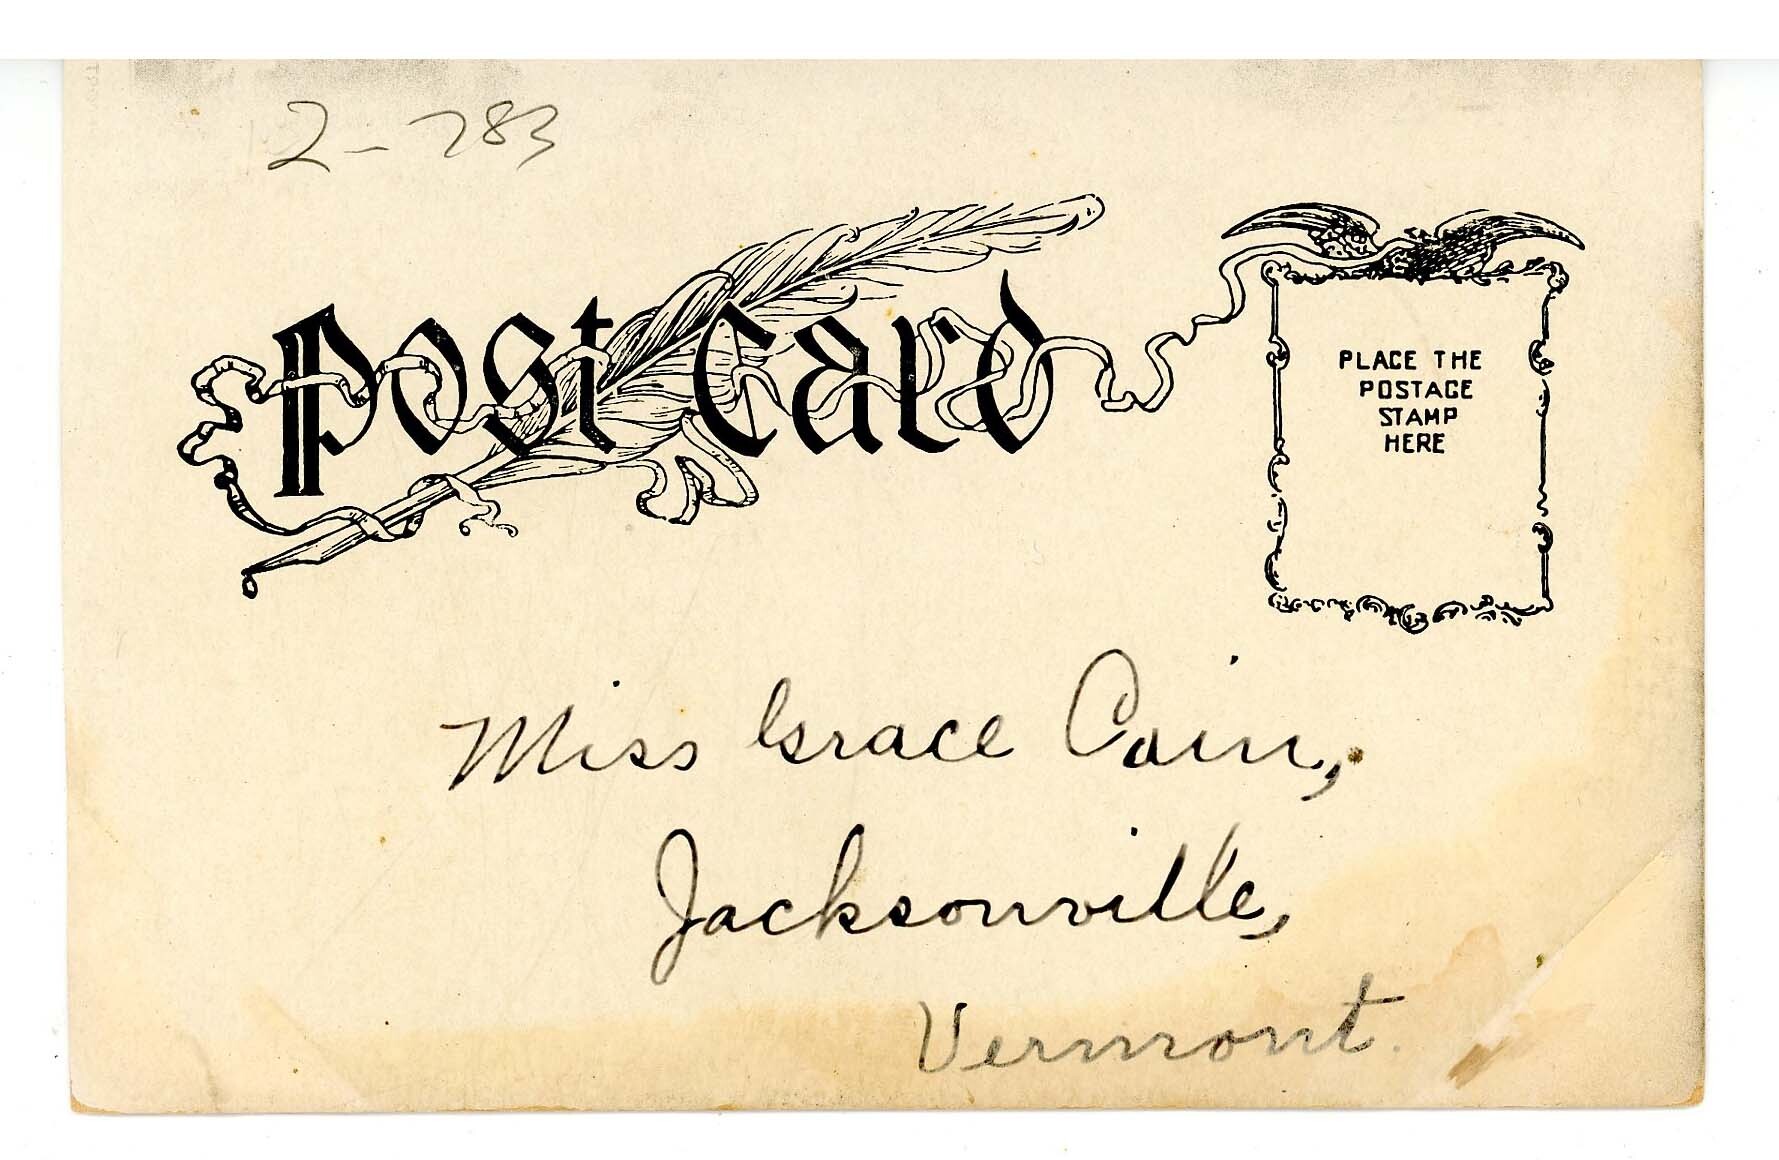 2-783
Post Card
PLACE THE
POSTAGE
STAMP
HERE
Miss Grace Cain,
Jacksonville,
Vermont.